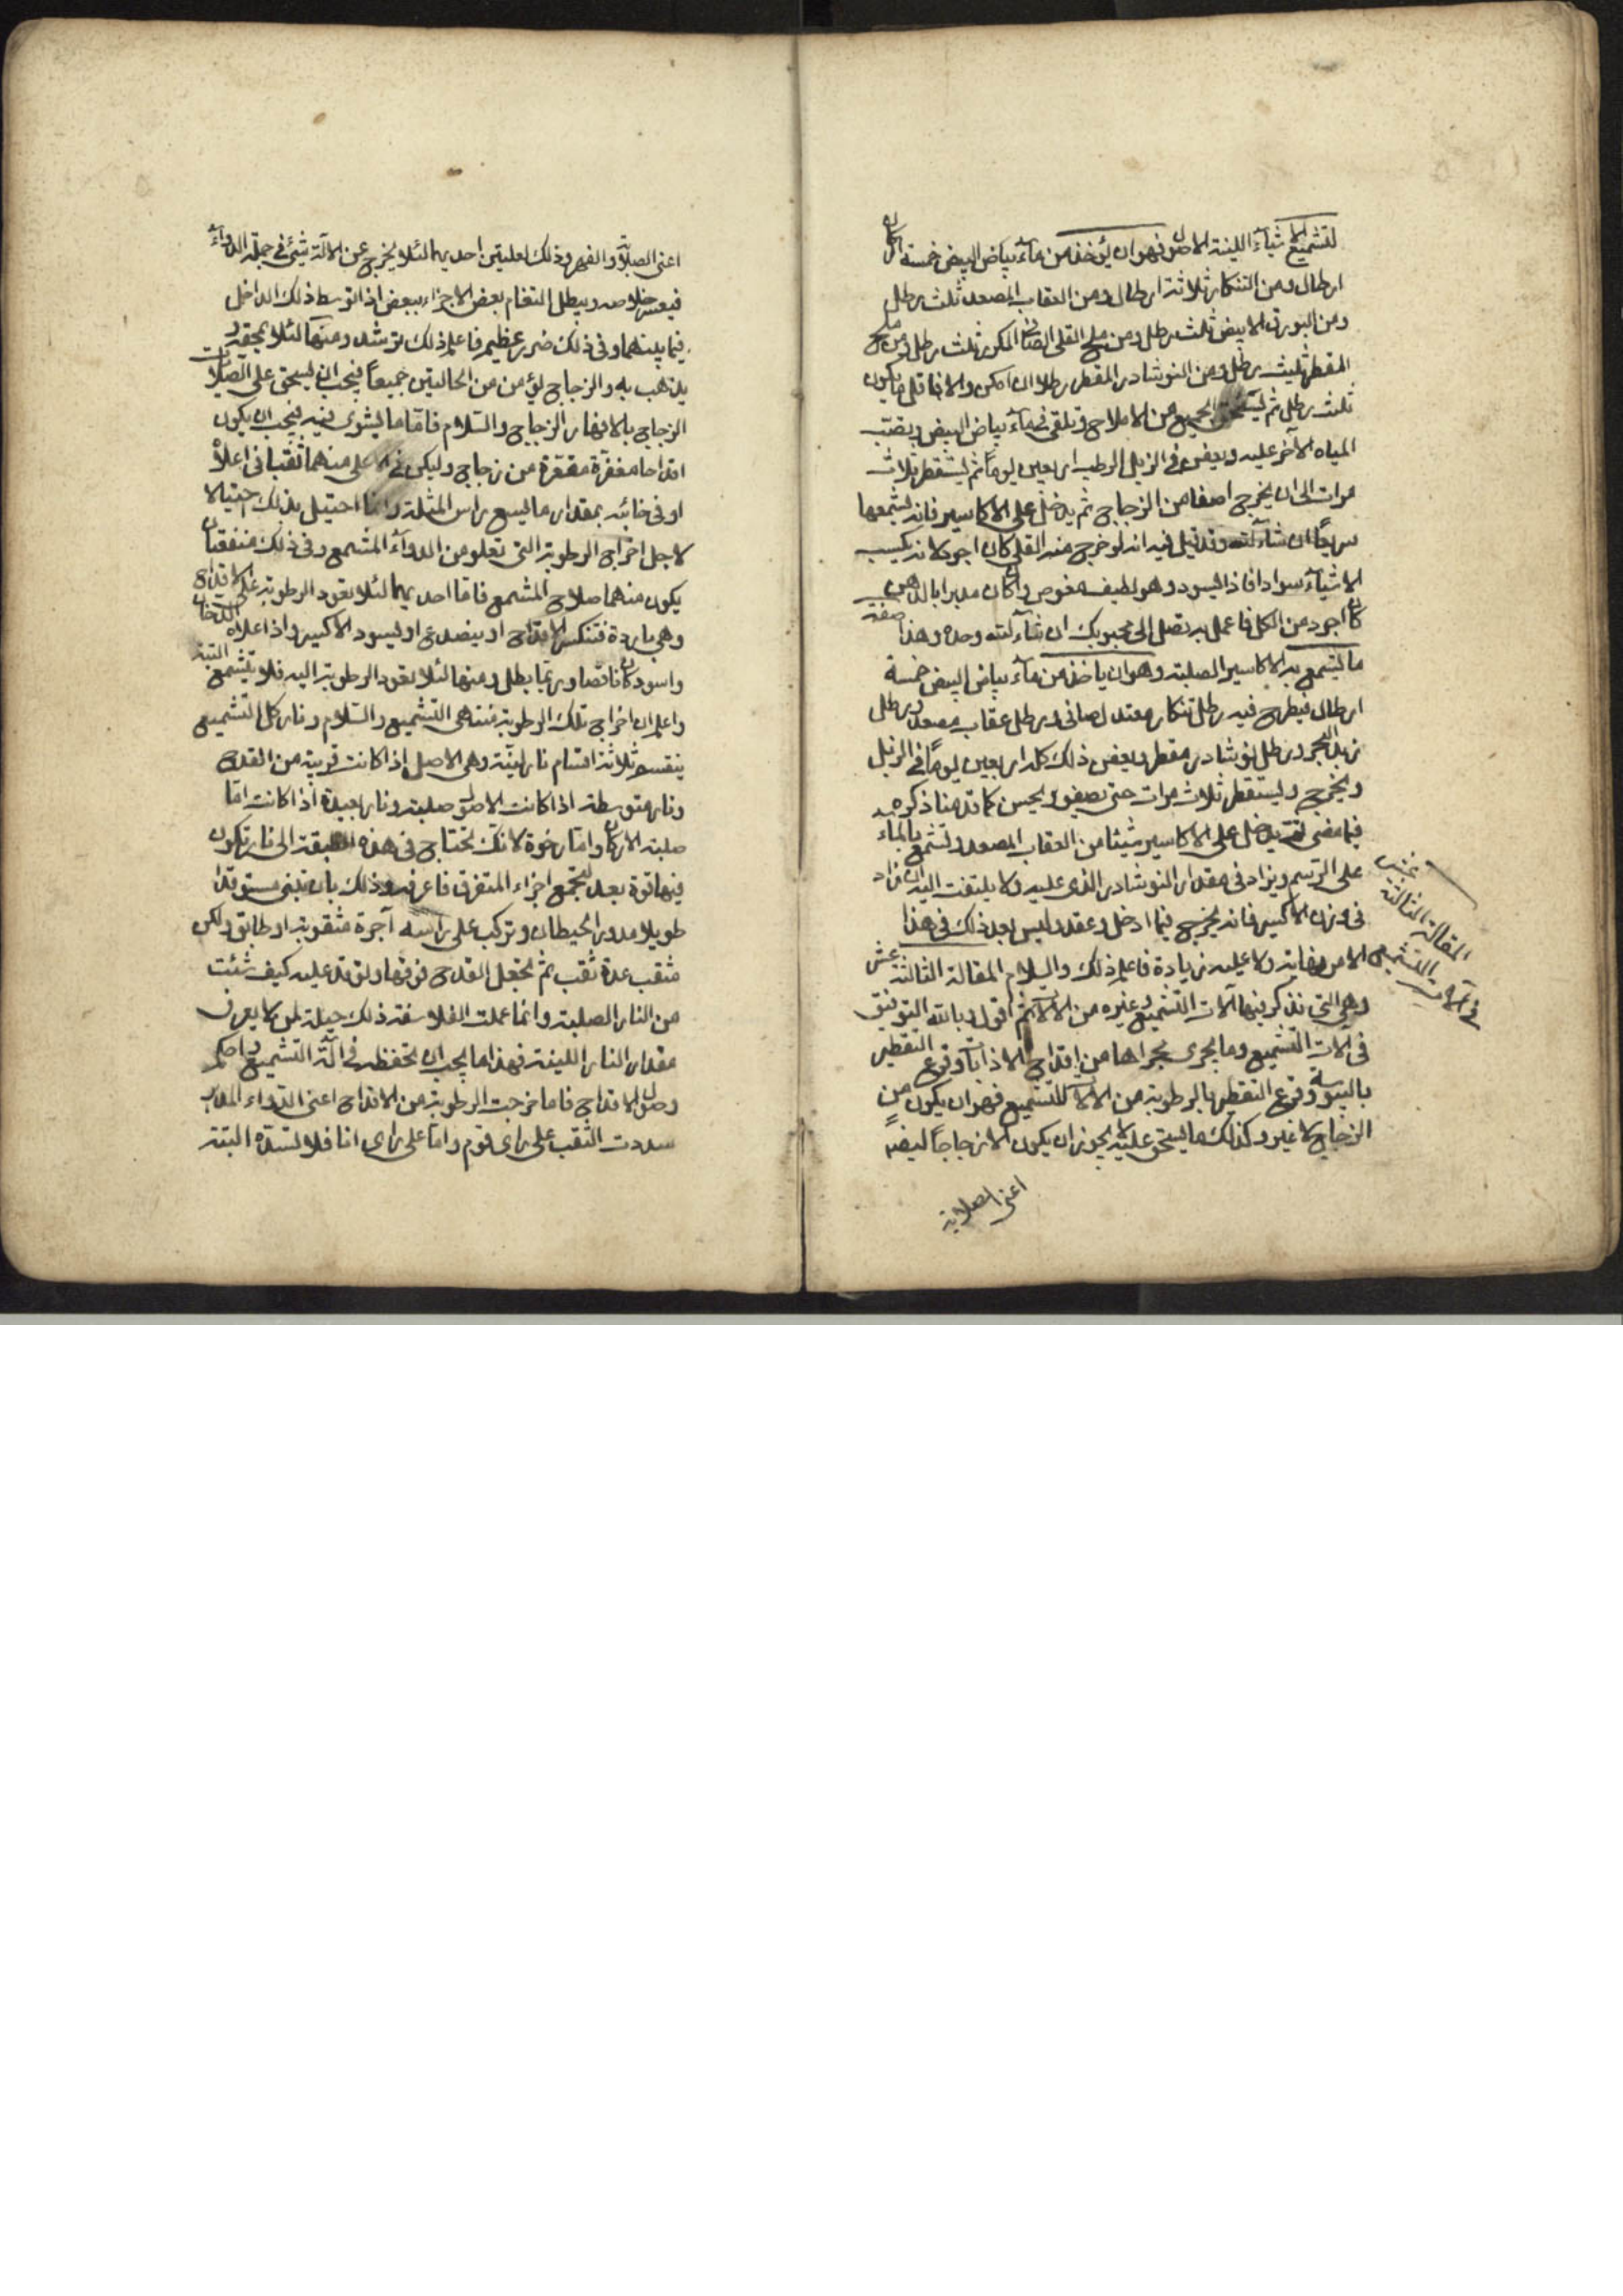 لتشميع الاشيآء اللينة الاصول فهو ان يؤخذ من مآء بياض البيض خمسة
ارطال ومن التنكار ثلاثة ارطال ومن العقاب المصعد ثلث رطل
ومن البورق الابيض ثلث رطل ومن ملح القلى الصافى المكرر ثلث رطل ومن ملح
المقطر ثلث رطل ومن النوشادر المقطر رطلا ان امكن والا فاقل ما يكون
ثلث رطل ثم ليسحق الجميع من الاملاح وتلقى فى مآء بياض البيض ويصب
المياه الآخر عليه ويعفن فى الزبل الرطب اربعين يوماً ثم يستقطر ثلاث
مرات الى ان يخرج اصفا من الزجاج ثم يدخل على الاكاسير فانه يشمعها
سريعاً ان شآء الله وقد قيل فيه انه لو خرج منه القلى كان اجود لانه يكسب
الاشيآء سوادا فاذا ليسود وهو لطيف مغوص وان كان مدبرا بالدهن
كان اجود من الكل فاعمل به تصل الى محبوبك ان شآء الله وحده وهذا صفة
ما يشمع به الاكاسير الصلبة وهو ان ياخذ من مآء بياض البيض خمسة
ارطال فيطرح فيه رطل تنكار معتدل صافى ورطل عقاب مصعد ورطل
زبد البحر ورطل نوشادر مقطر ويعفن ذلك كله اربعين يوماً فى الزبل
ويخرج ويستقطر ثلاث مرات حتى يصفو ويحسن كما قدمنا ذكره
فيما مضى يدخل على الاكاسير شيئا من العقاب المصعد وتشمع بالماء
على الرسم ويزاد فى مقدار النوشادر الذى عليه ولا يلتفت اليه ان زاد
فى وزن الاكسير فانه يخرج فيما ادخل وعقد وليس بعد ذلك فى هذا
الامر نهاية ولا عليه زيادة فاعلم ذلك والسلام المقالة الثالثة عشر
وهى التى نذكر فيها آلات التشميع وغيره من الآلات ثم اقول وبالله التوفيق
فى آلات التشميع وما يجرى مجراها من اقداح الاذابات وقرع التقطير
باليبوسة وقرع التقطير بالرطوبة من الآلات للتشميع فهو ان يكون من
الزجاج لا غير وكذلك ما يسحق عليه لا يجوز ان يكون الا زجاجاً ايضاً
اعنى الصلاية
المقالة الثالثة عشر
فى آلات التشميع
اعنى الصلاية والفهر وذلك لعلتين احديهما لئلا يخرج عن الآلة شئ فى جملة الدوآء
فيعسر خلاصه ويبطل التئام بعض الاجزاء ببعض اذا توسط ذلك الداخل
فيما بينهما وفى ذلك ضرر عظيم فاعلم ذلك ترشد ومنها لئلا
يذهب به والزجاج يؤمن من الحالتين جميعاً فيجب ان يسحق على الصلايات
الزجاج بالافهار الزجاج والسلام فاما ما يشوى فيه فيجب ان يكون
اقداحا مقعرة من زجاج وليكن فى الاعلى منهما ثقبا فى اعلاه
او فى جانبه بمقدار ما يسع راس المسلة وانما احتيل بذلك حيتالا
لاجل اخراج الرطوبة التى تعلو من الدوآء المشمع وفى ذلك منفعتان
يكون منهما صلاح المشمع فاما احديهما لئلا يعود الرطوبة على الاقداح
وهى باردة فتنكسر الاقداح او ينصدع او ليسود الاكسير واذا علاه الدخان
واسود كان ناقصا وربما بطل ومنها لئلا يعود الرطوبة اليه فلا يتشمع البتة
واعلم ان اخراج تلك الرطوبة منتهى التشميع والسلام ونار كل التشميع
ينقسم ثلاثة اقسام نار لينة وهى الاصل اذا كانت قريبة من القدح
ونار متوسطة اذا كانت الاصول صلبة ونار بعيدة اذا كانت اما
صلبة الاركان واما رخوة لانك تحتاج فى هذه الطبقة الى نار تكون
فيها قوة بعد لتجمع اجزاء المتفرق فاعرفه وذلك بان تبنى مستوقدا
طويلا مدور الحيطان وتركب على راسه آجرة مثقوبة او طابق ولكن
مثقب عدة ثقب ثم تجعل القدح فوقها وتوقد عليه كيف شئت
من النار الصلبة وانما عملت الفلاسفة ذلك حيلة لمن لا يعرف
مقدار النار اللينة فهذا ما يجب ان تحفظه فى آلة التشميع واحكم
وصول الاقداح فاما خرجت الرطوبة من الاقداح اعنى الدواء المدبر
سددت الثقب على راى قوم واما على راى انا فلا تسده البتة